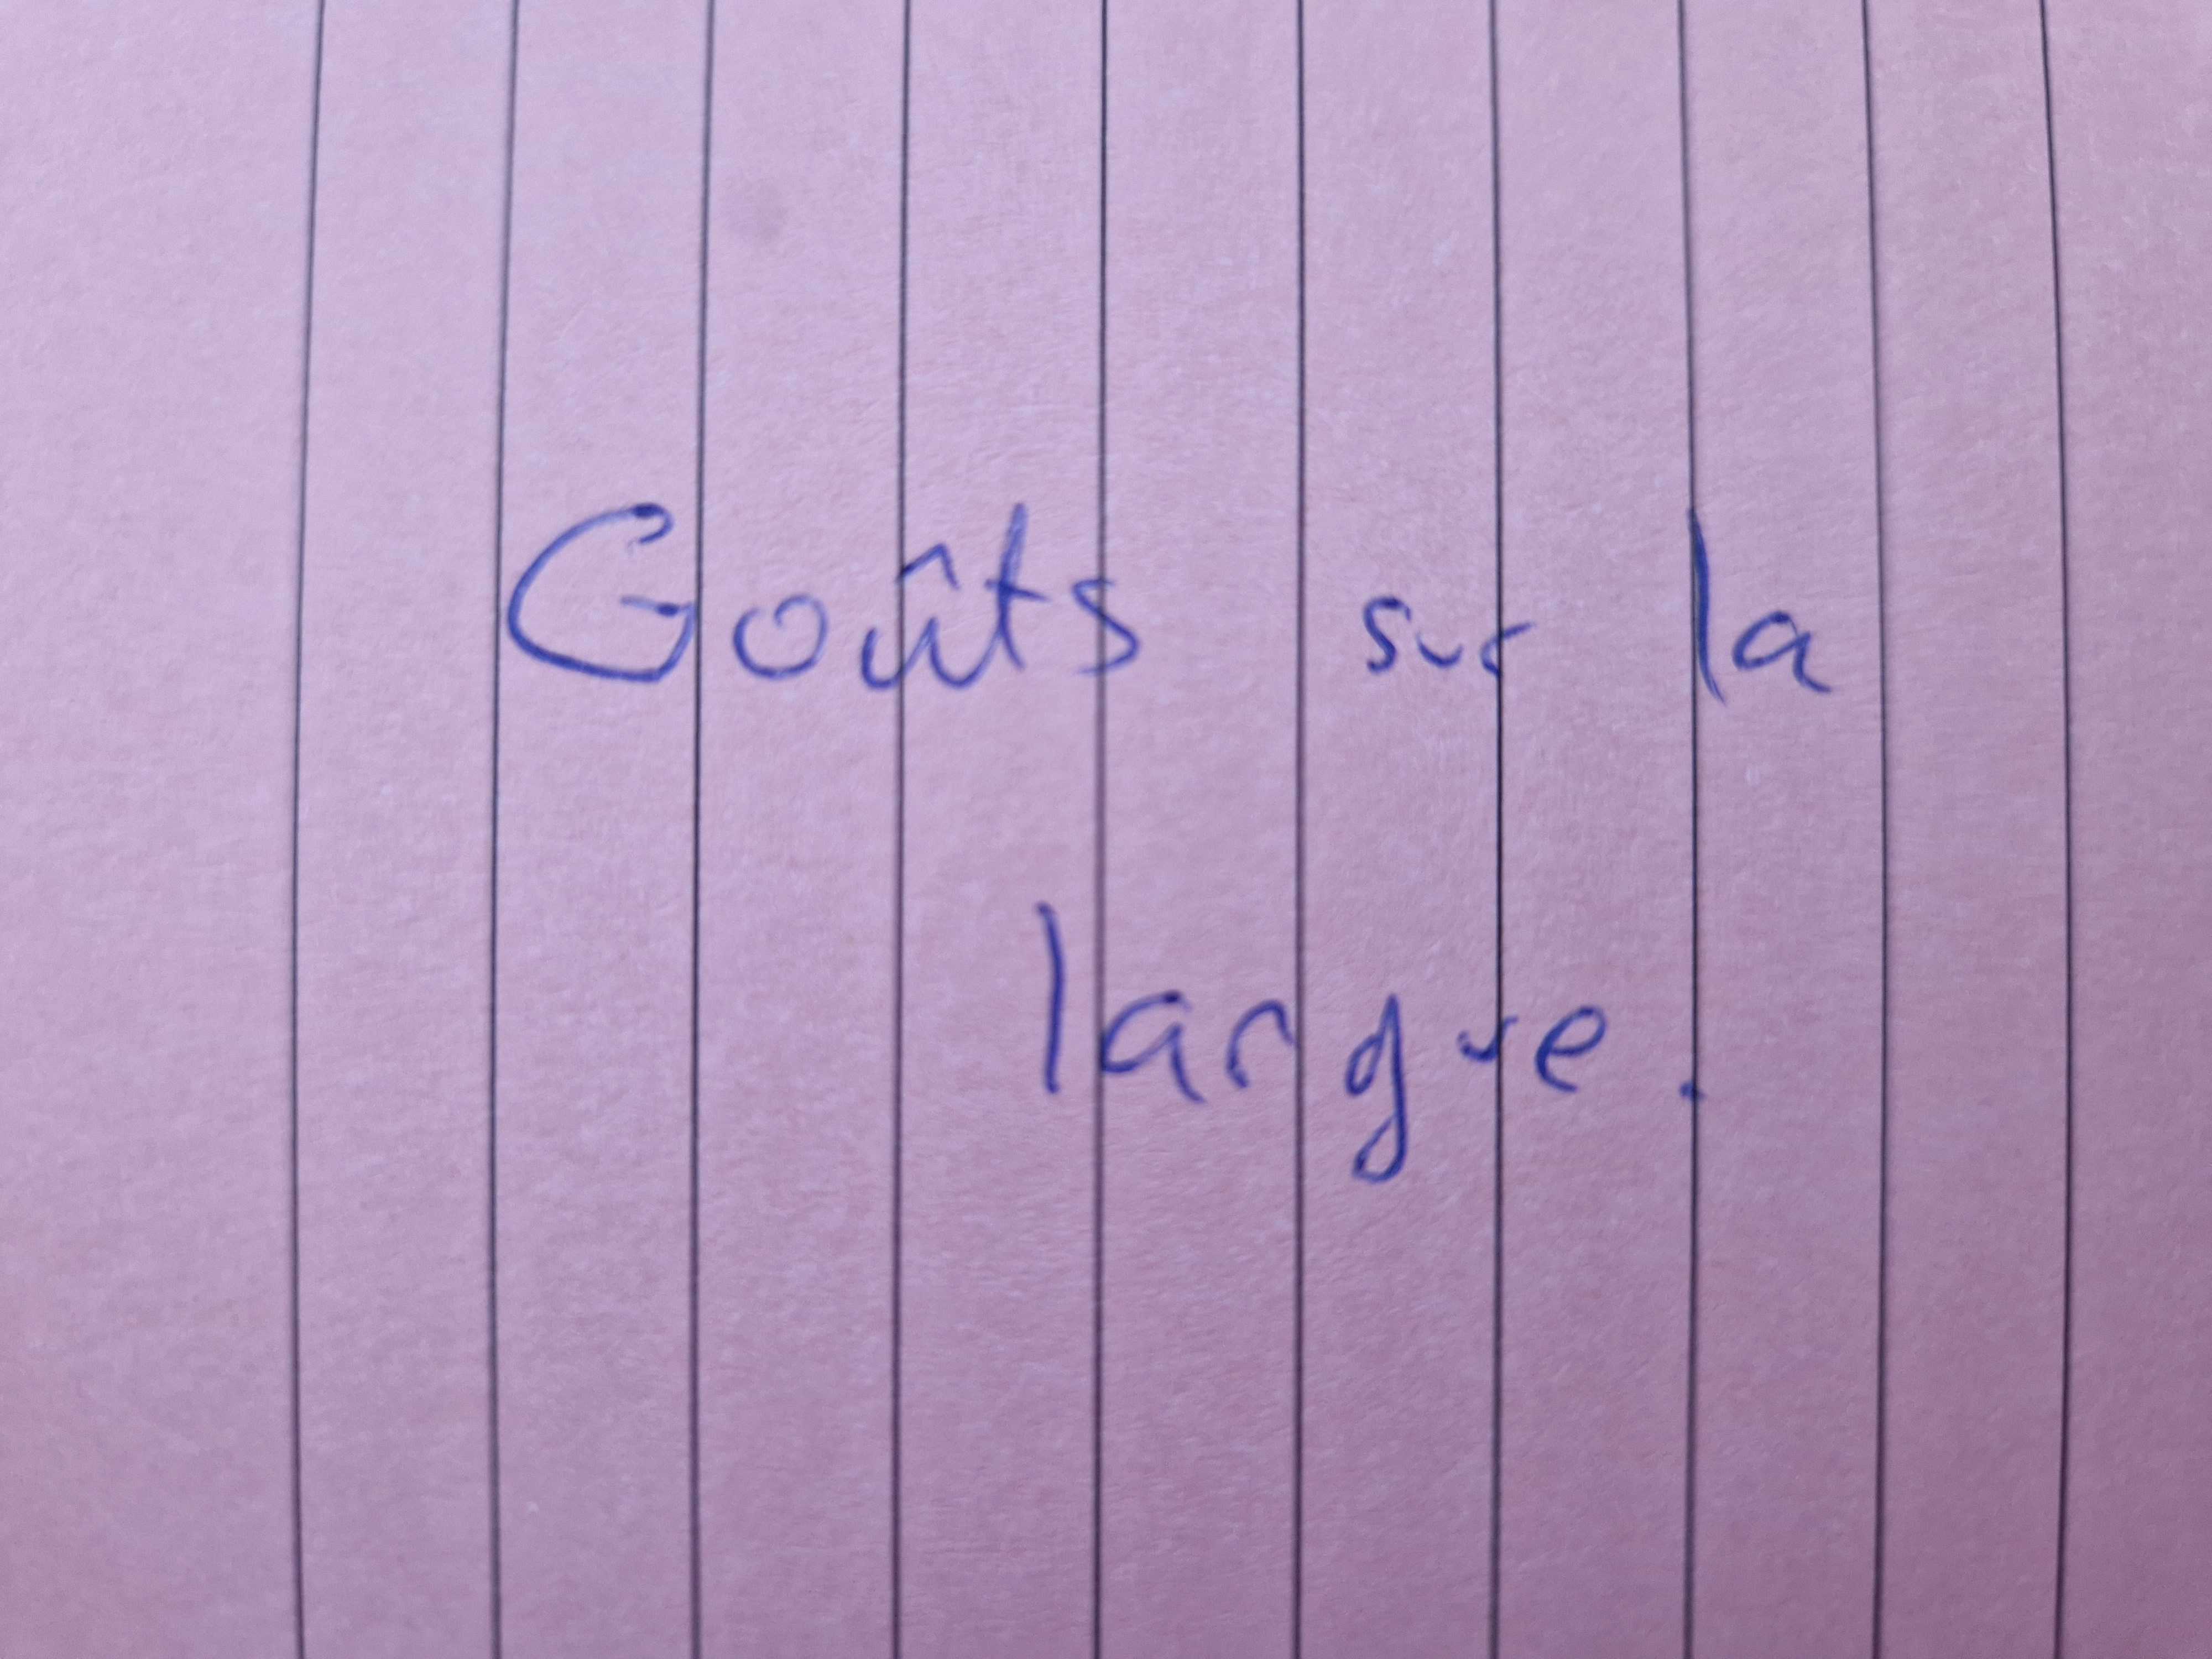 Goûts sur la
langue.